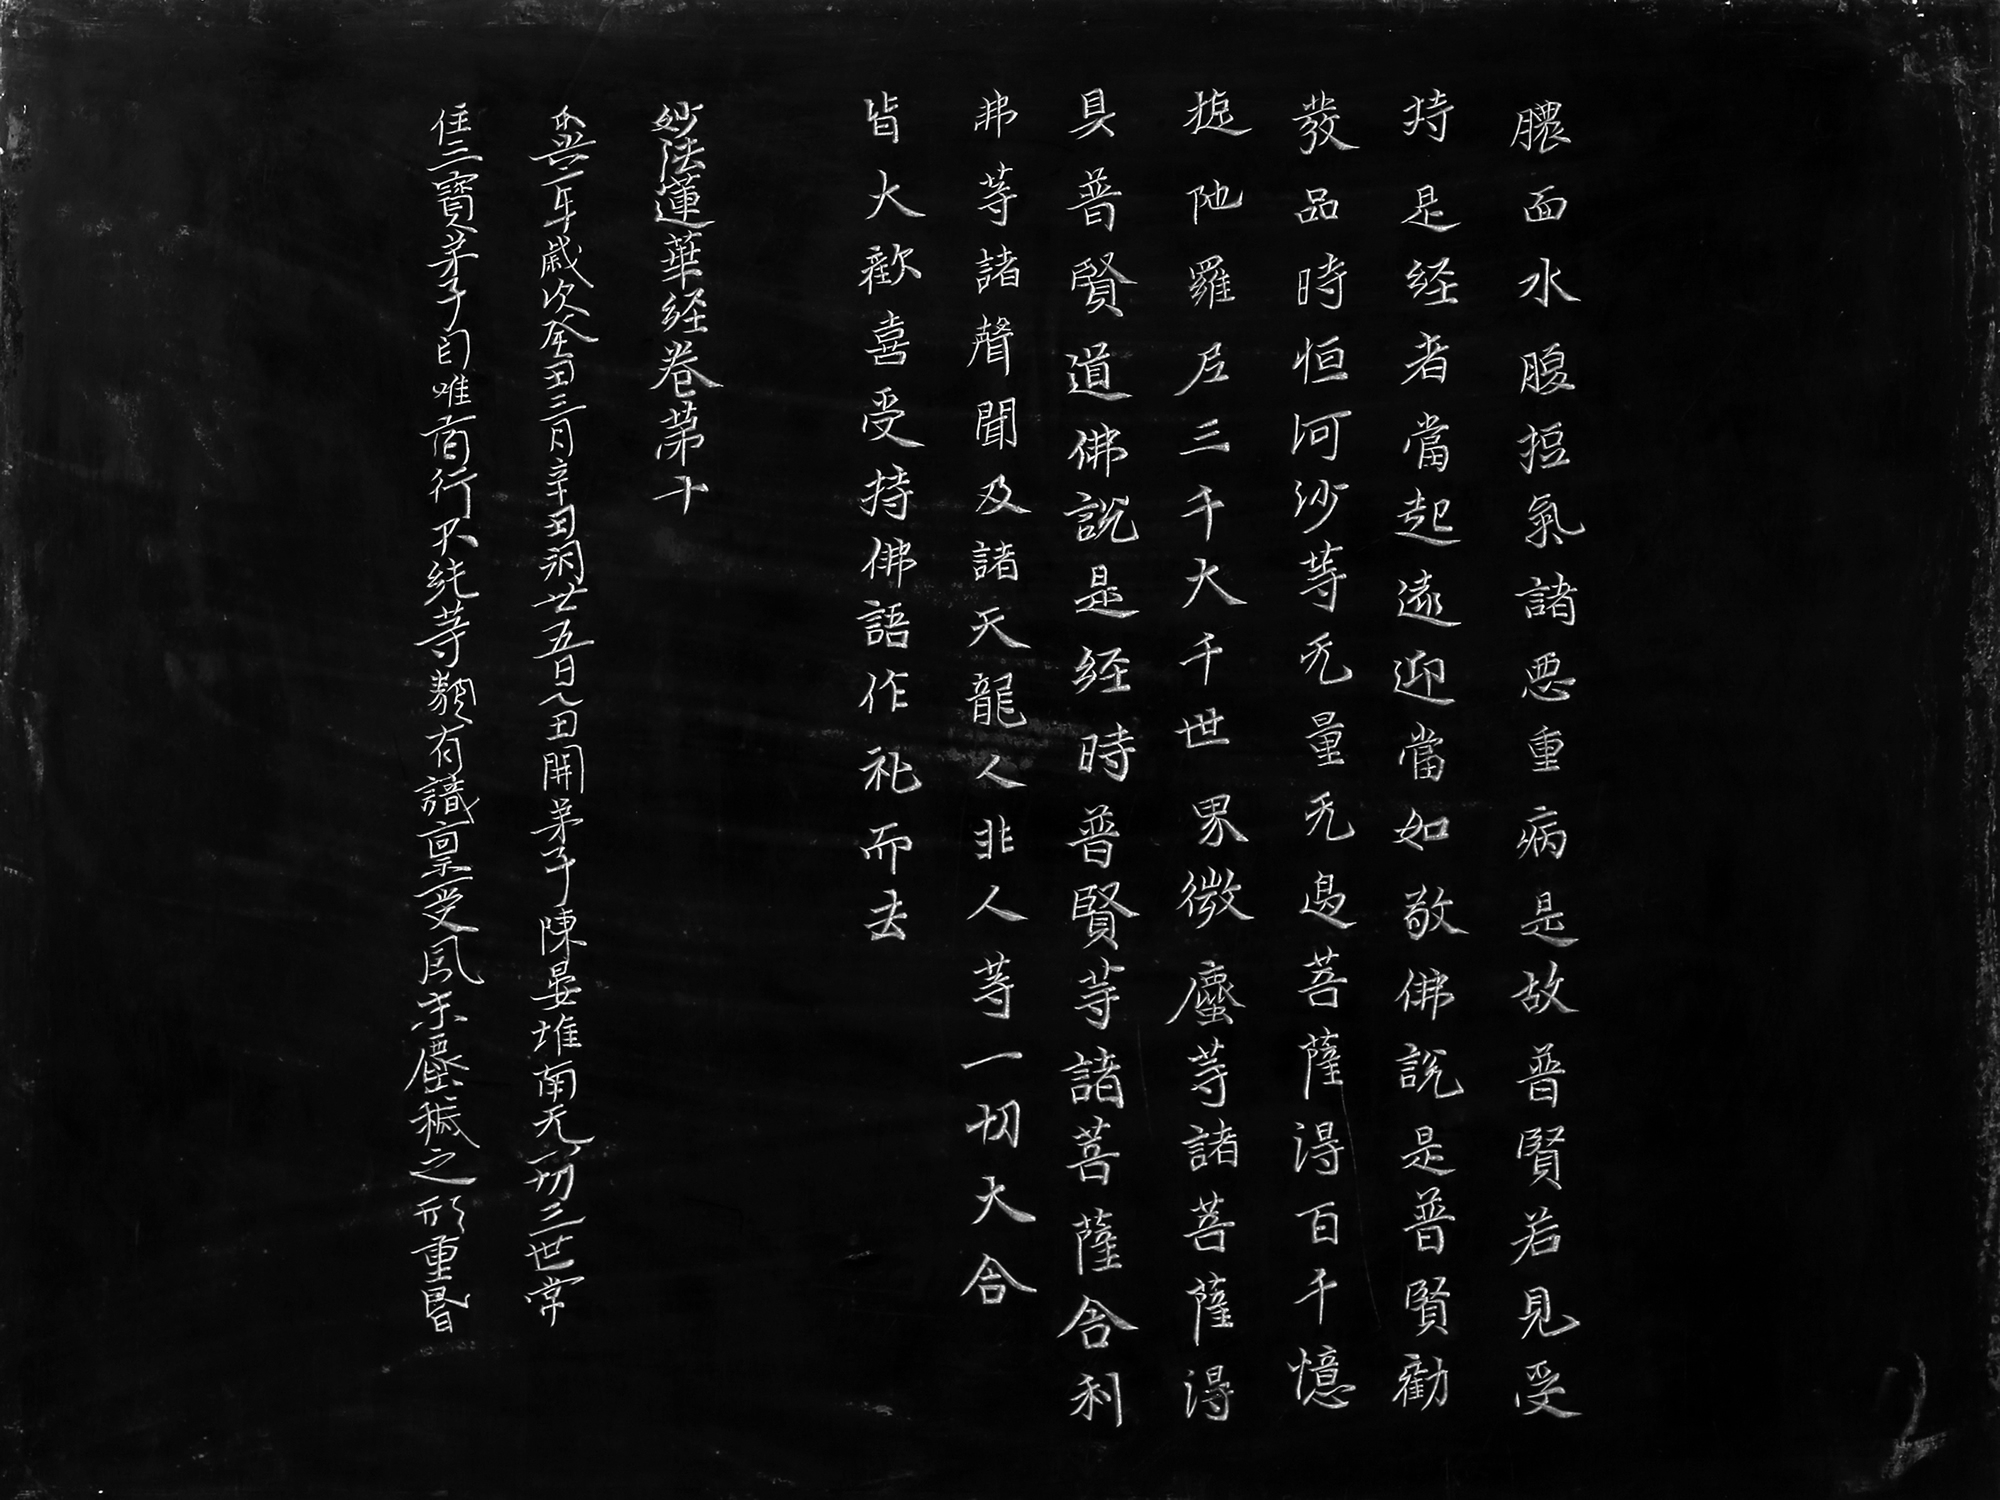 膿面水腹短氣諸惡重病是故普賢若見受
持是経者當起遠迎當如敬佛說是普賢勸
發品時恒河沙等无量无邊菩薩得百千憶
旋陁羅尼三千大千世界微塵等諸菩薩得
具普賢道佛說是経時普賢等諸菩薩舍利
弗等諸聲聞及諸天龍人非人等一切大會
皆大歡喜受持佛語作礼而去
妙法蓮華経卷第十
興二年歲次三月辛朔廿五日開弟子陳晏堆南无一切三世常
住三寶弟子自唯宿行不純等類有識稟受風末塵穢之形重昏